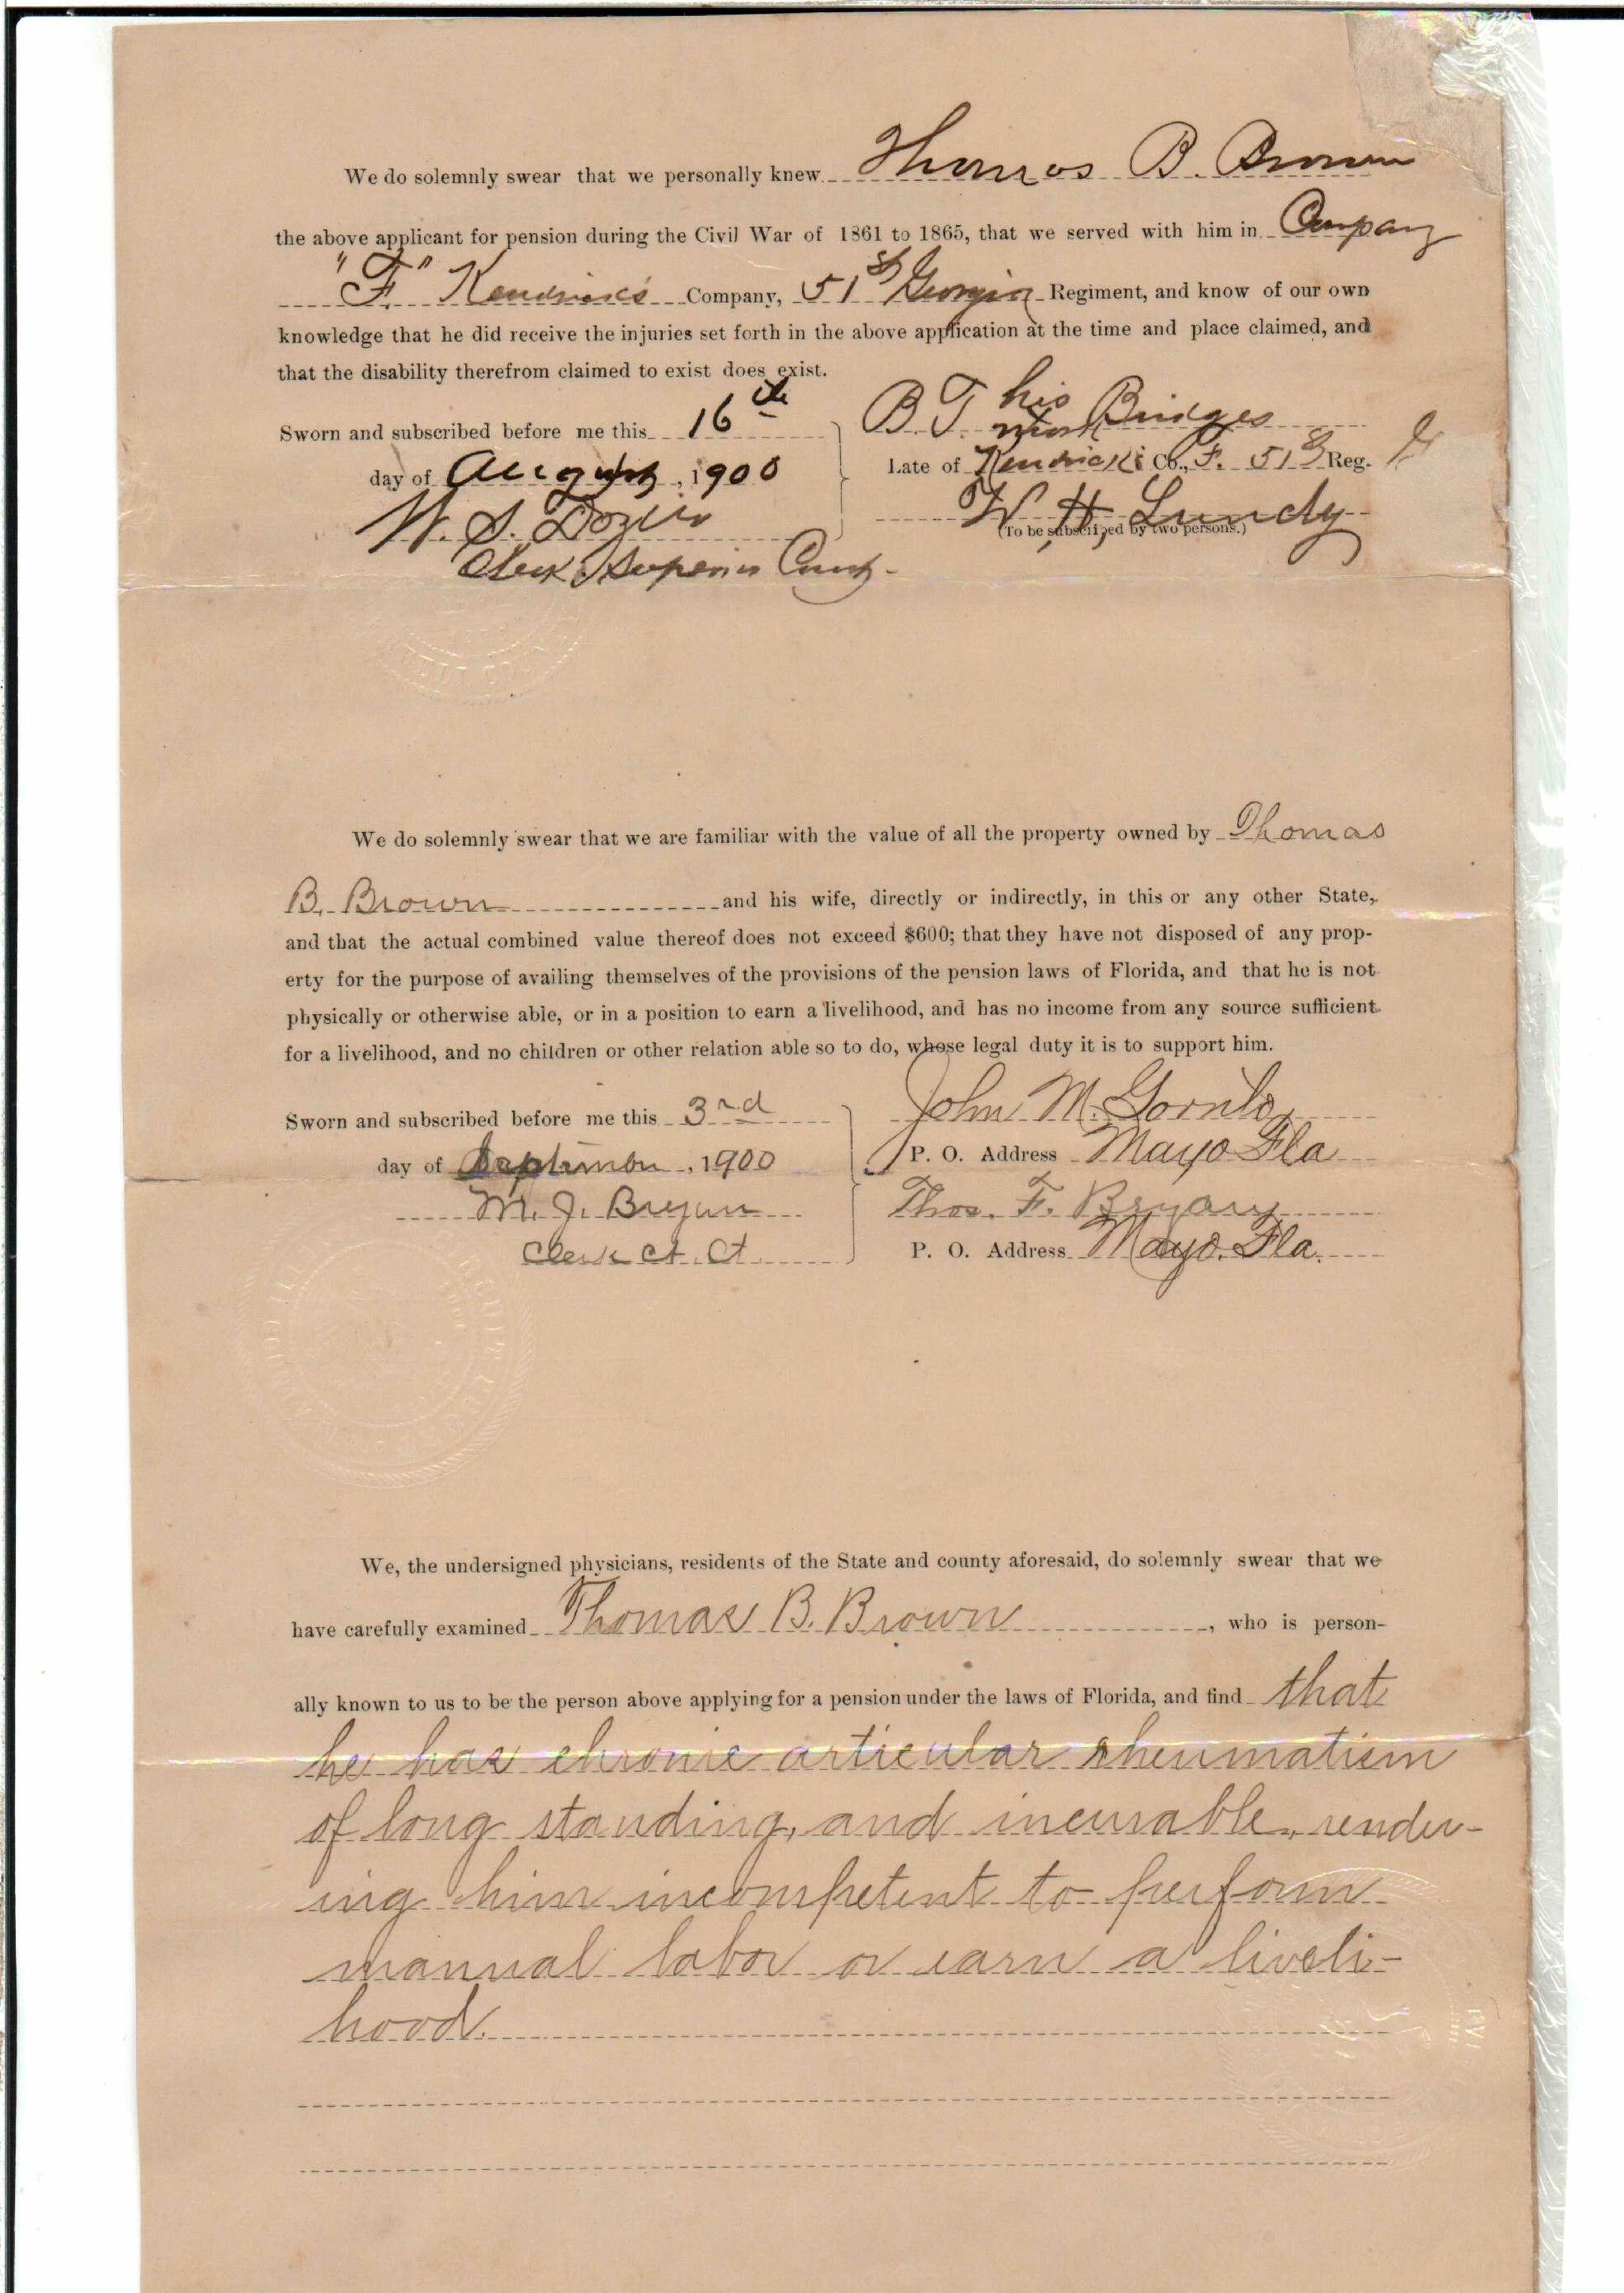 We do solemnly swear that we personally knew Thomas B. Brown
the above applicant for pension during the Civil War of 1861 to 1865, that we served with him in Company
"F" Kendrick's Company, 51st Georgia Regiment, and know of our own
knowledge that he did receive the injuries set forth in the above application at the time and place claimed, and
that the disability therefrom claimed to exist does exist.
Sworn and subscribed before me this 16th
day of August, 1900
W. S. Dozier
Clerk Superior Court.
B. T. his mark Bridges
Late of Kendrick's Co., F. 51st Reg.
W. H. Lundy
(To be subscribed by two persons.)
We do solemnly swear that we are familiar with the value of all the property owned by Thomas
B. Brown and his wife, directly or indirectly, in this or any other State,
and that the actual combined value thereof does not exceed $600; that they have not disposed of any prop-
erty for the purpose of availing themselves of the provisions of the pension laws of Florida, and that he is not
physically or otherwise able, or in a position to earn a livelihood, and has no income from any source sufficient
for a livelihood, and no children or other relation able so to do, whose legal duty it is to support him.
Sworn and subscribed before me this 3rd
day of September, 1900
M. J. Bryan
Clerk Ct. Ct.
John M. Gornto
P. O. Address Mayo Fla
Thos. F. Bryany
P. O. Address Mayo. Fla.
We, the undersigned physicians, residents of the State and county aforesaid, do solemnly swear that we
have carefully examined Thomas B. Brown, who is person-
ally known to us to be the person above applying for a pension under the laws of Florida, and find that
he has chronic articular rheumatism
of long standing, and incurable, render-
ing him incompetent to perform
manual labor or earn a liveli-
hood.